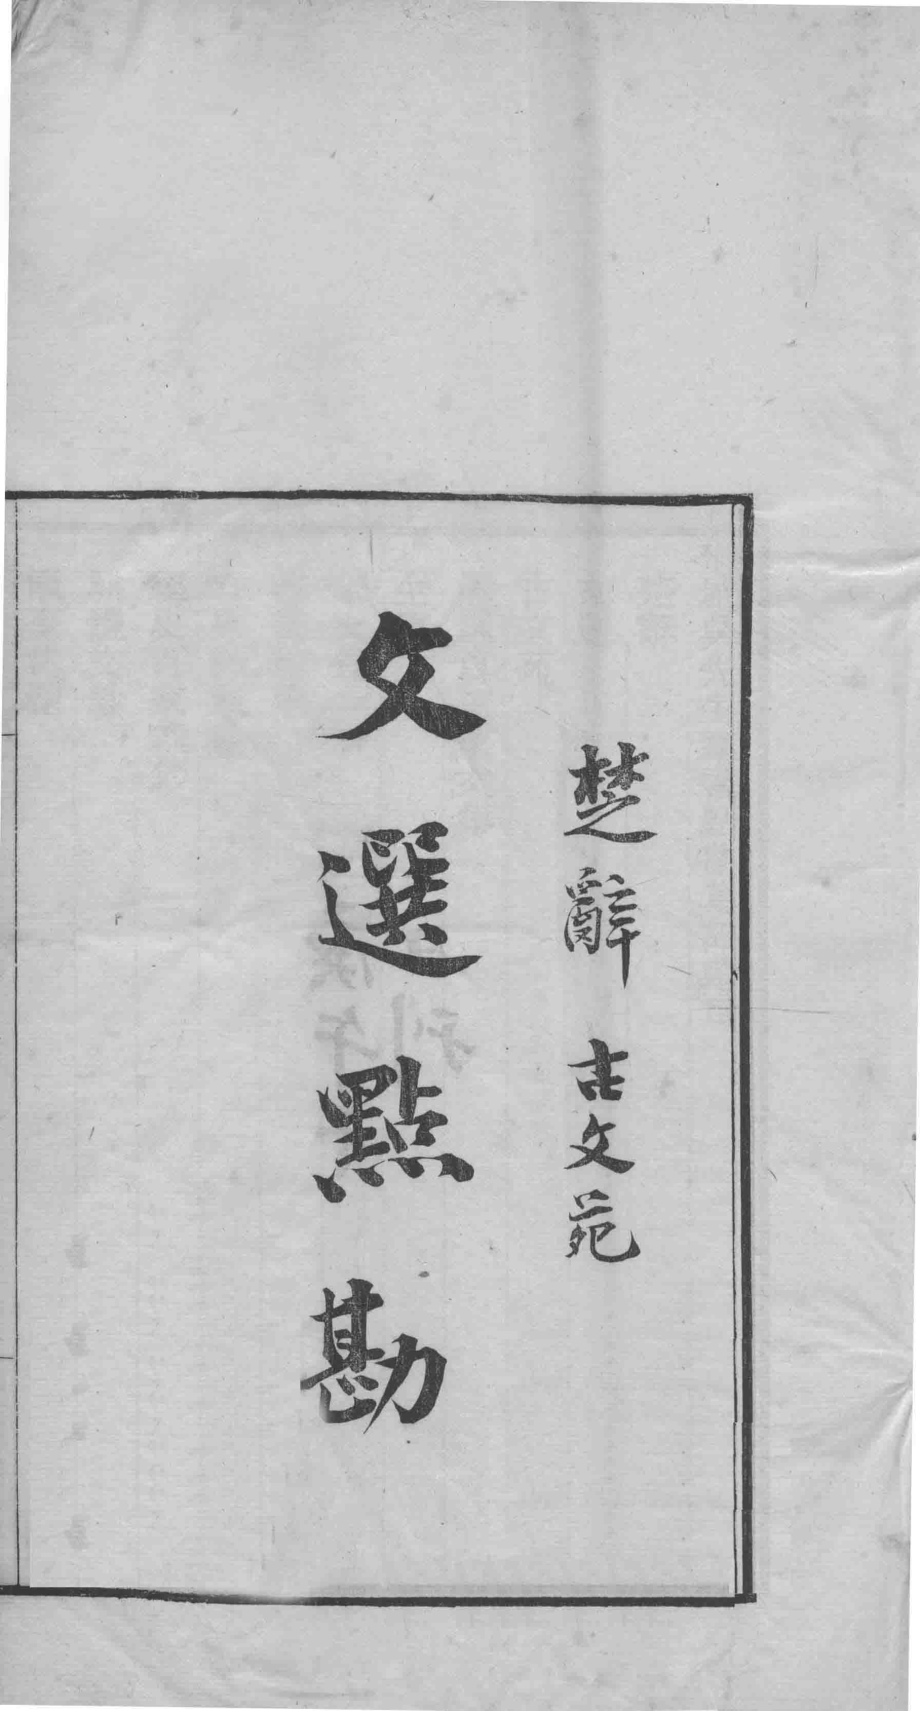 楚辭 古文苑
文選點勘